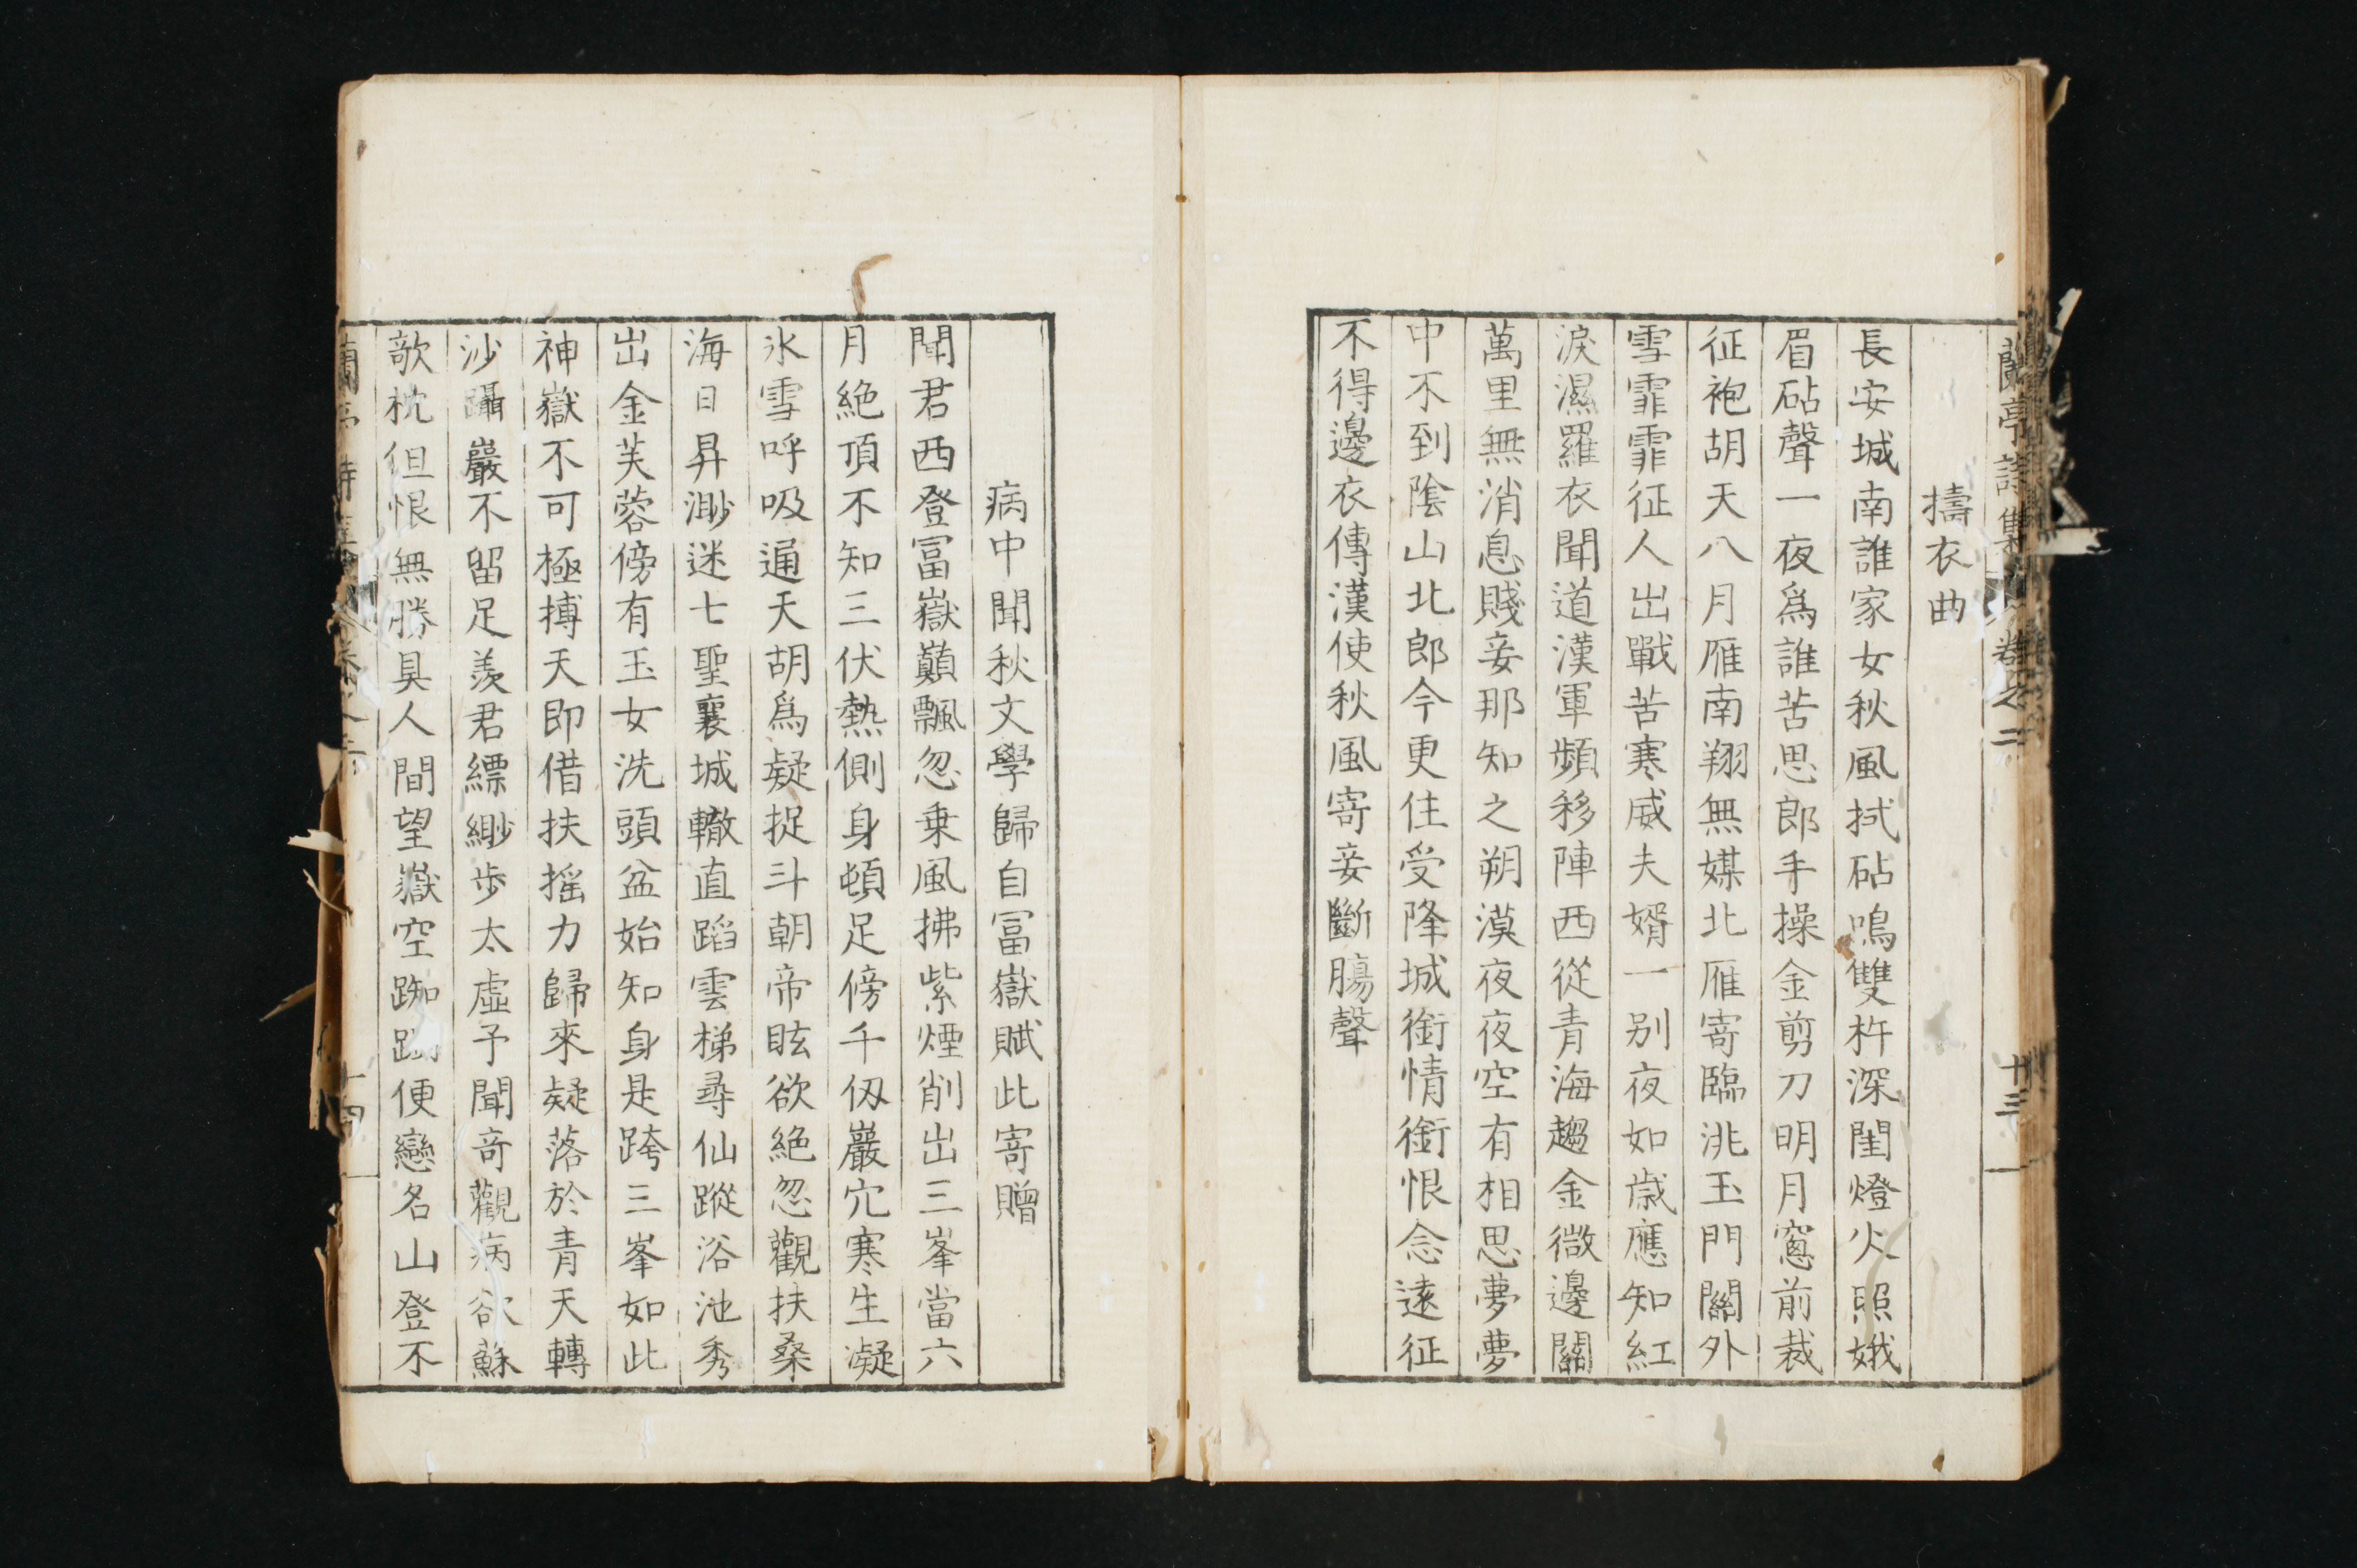 蘭亭詩集 卷之二 十三
擣衣曲
長安城南誰家女秋風拭砧鳴雙杵深閨燈火照娥
眉砧聲一夜爲誰苦思郎手操金剪刀明月窻前裁
征袍胡天八月雁南翔無媒北雁寄臨洮玉門關外
雪霏霏征人出戰苦寒威夫婿一別夜如歳應知紅
淚濕羅衣聞道漢軍頻移陣西從青海趨金微邊關
萬里無消息賤妾那知之朔漠夜夜空有相思夢夢
中不到陰山北郎今更住受降城銜情銜恨念遠征
不得邊衣傳漢使秋風寄妾斷腸聲
病中聞秋文學歸自冨嶽賦此寄贈
聞君西登冨嶽巓飄忽乗風拂紫煙削出三峯當六
月絶頂不知三伏熱側身頓足傍千仭巖穴寒生凝
氷雪呼吸通天胡爲疑捉斗朝帝眩欲絶忽觀扶桑
海日昇渺迷七聖襄城轍直蹈雲梯尋仙蹤浴池秀
出金芙蓉傍有玉女洗頭盆始知身是跨三峯如此
神嶽不可極搏天即借扶揺力歸來疑落於青天轉
沙躡巖不留足羨君縹緲歩太虛予聞竒觀病欲蘇
欹枕但恨無勝具人間望嶽空踟蹰便戀名山登不
蘭亭詩 十四